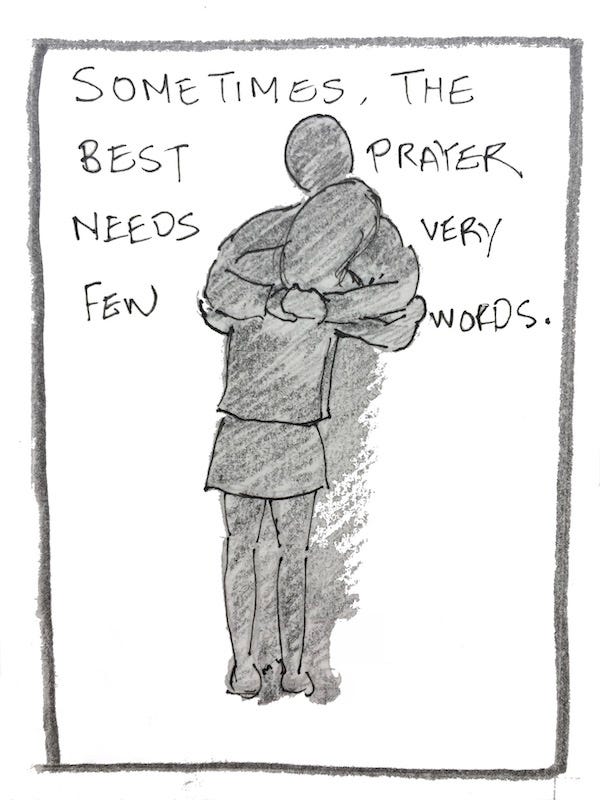 SOMETIMES, THE
BEST PRAYER
NEEDS VERY
FEW WORDS.